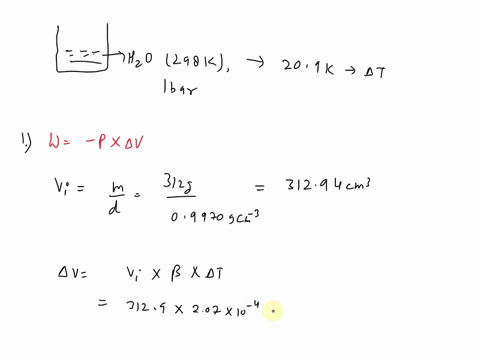 H2O (298K), → 20.9K → ΔT
1bar
1.) W = -P × ΔV
Vi = m/d = 312g / 0.9970 g cm⁻³ = 312.94 cm³
ΔV = Vi × β × ΔT
= 312.9 × 2.07 × 10⁻⁴